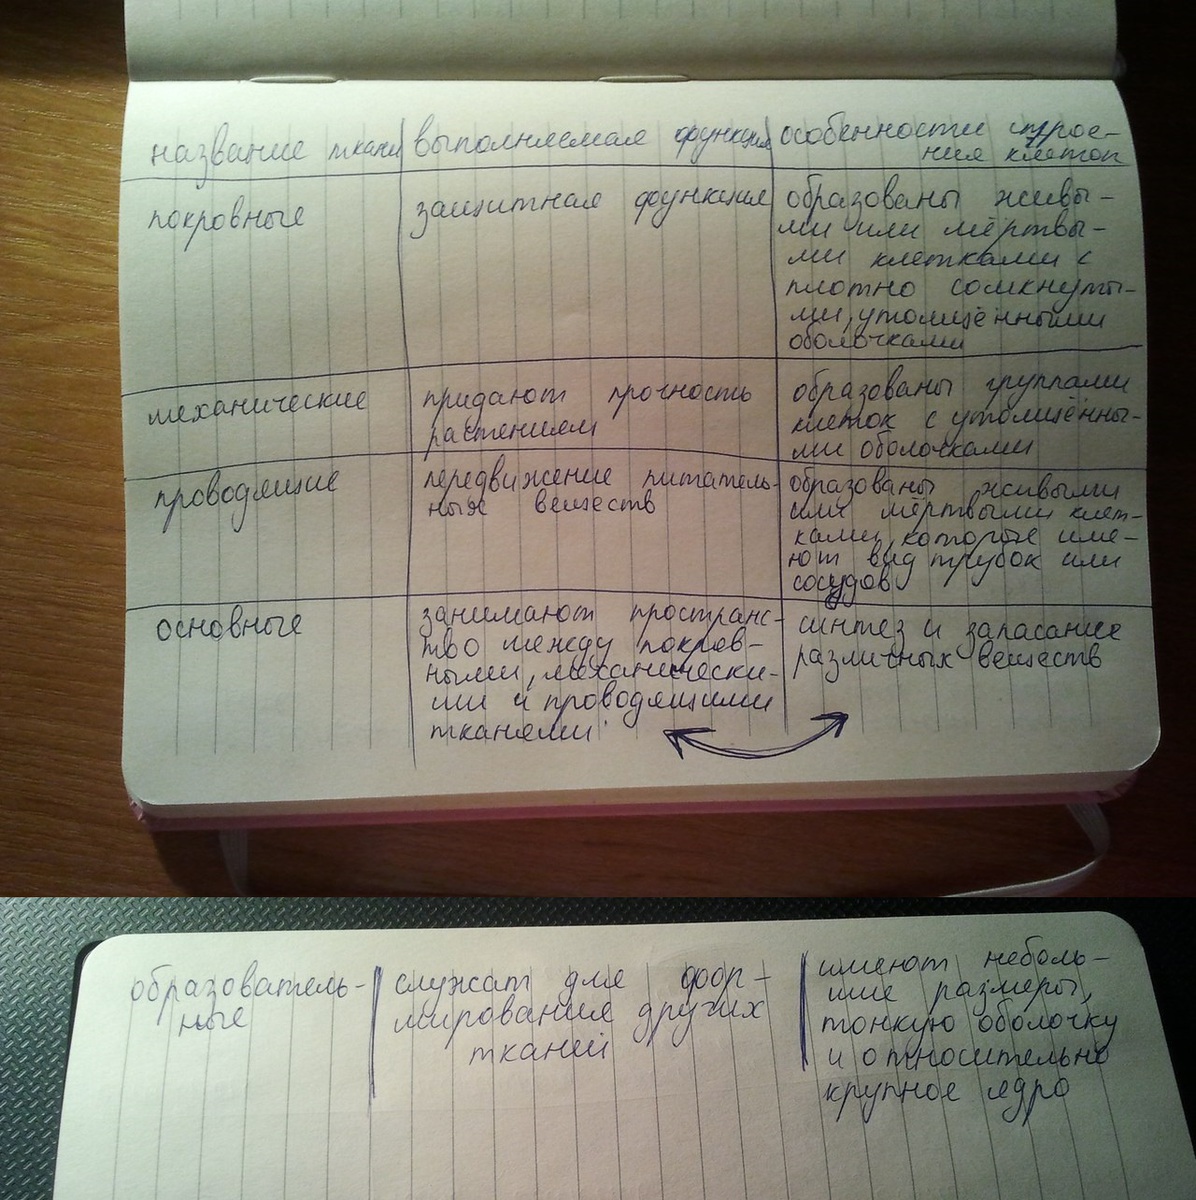 название ткани
выполняемая функция
особенности строе-
ния клеток
покровные
защитная функция
образованы живы-
ми или мёртвы-
ми клетками с
плотно сомкнуты-
ми, утолщёнными
оболочками
механические
придают прочность
растениям
образованы группами
клеток с утолщённы-
ми оболочками
проводящие
передвижение питатель-
ных веществ
образованы живыми
или мёртвыми клет-
ками, которые име-
ют вид трубок или
сосудов
основные
занимают пространс-
тво между покров-
ными, механически-
ми и проводящими
тканями
синтез и запасание
различных веществ
образователь-
ные
служат для фор-
мирования других
тканей
имеют неболь-
шие размеры,
тонкую оболочку
и относительно
крупное ядро